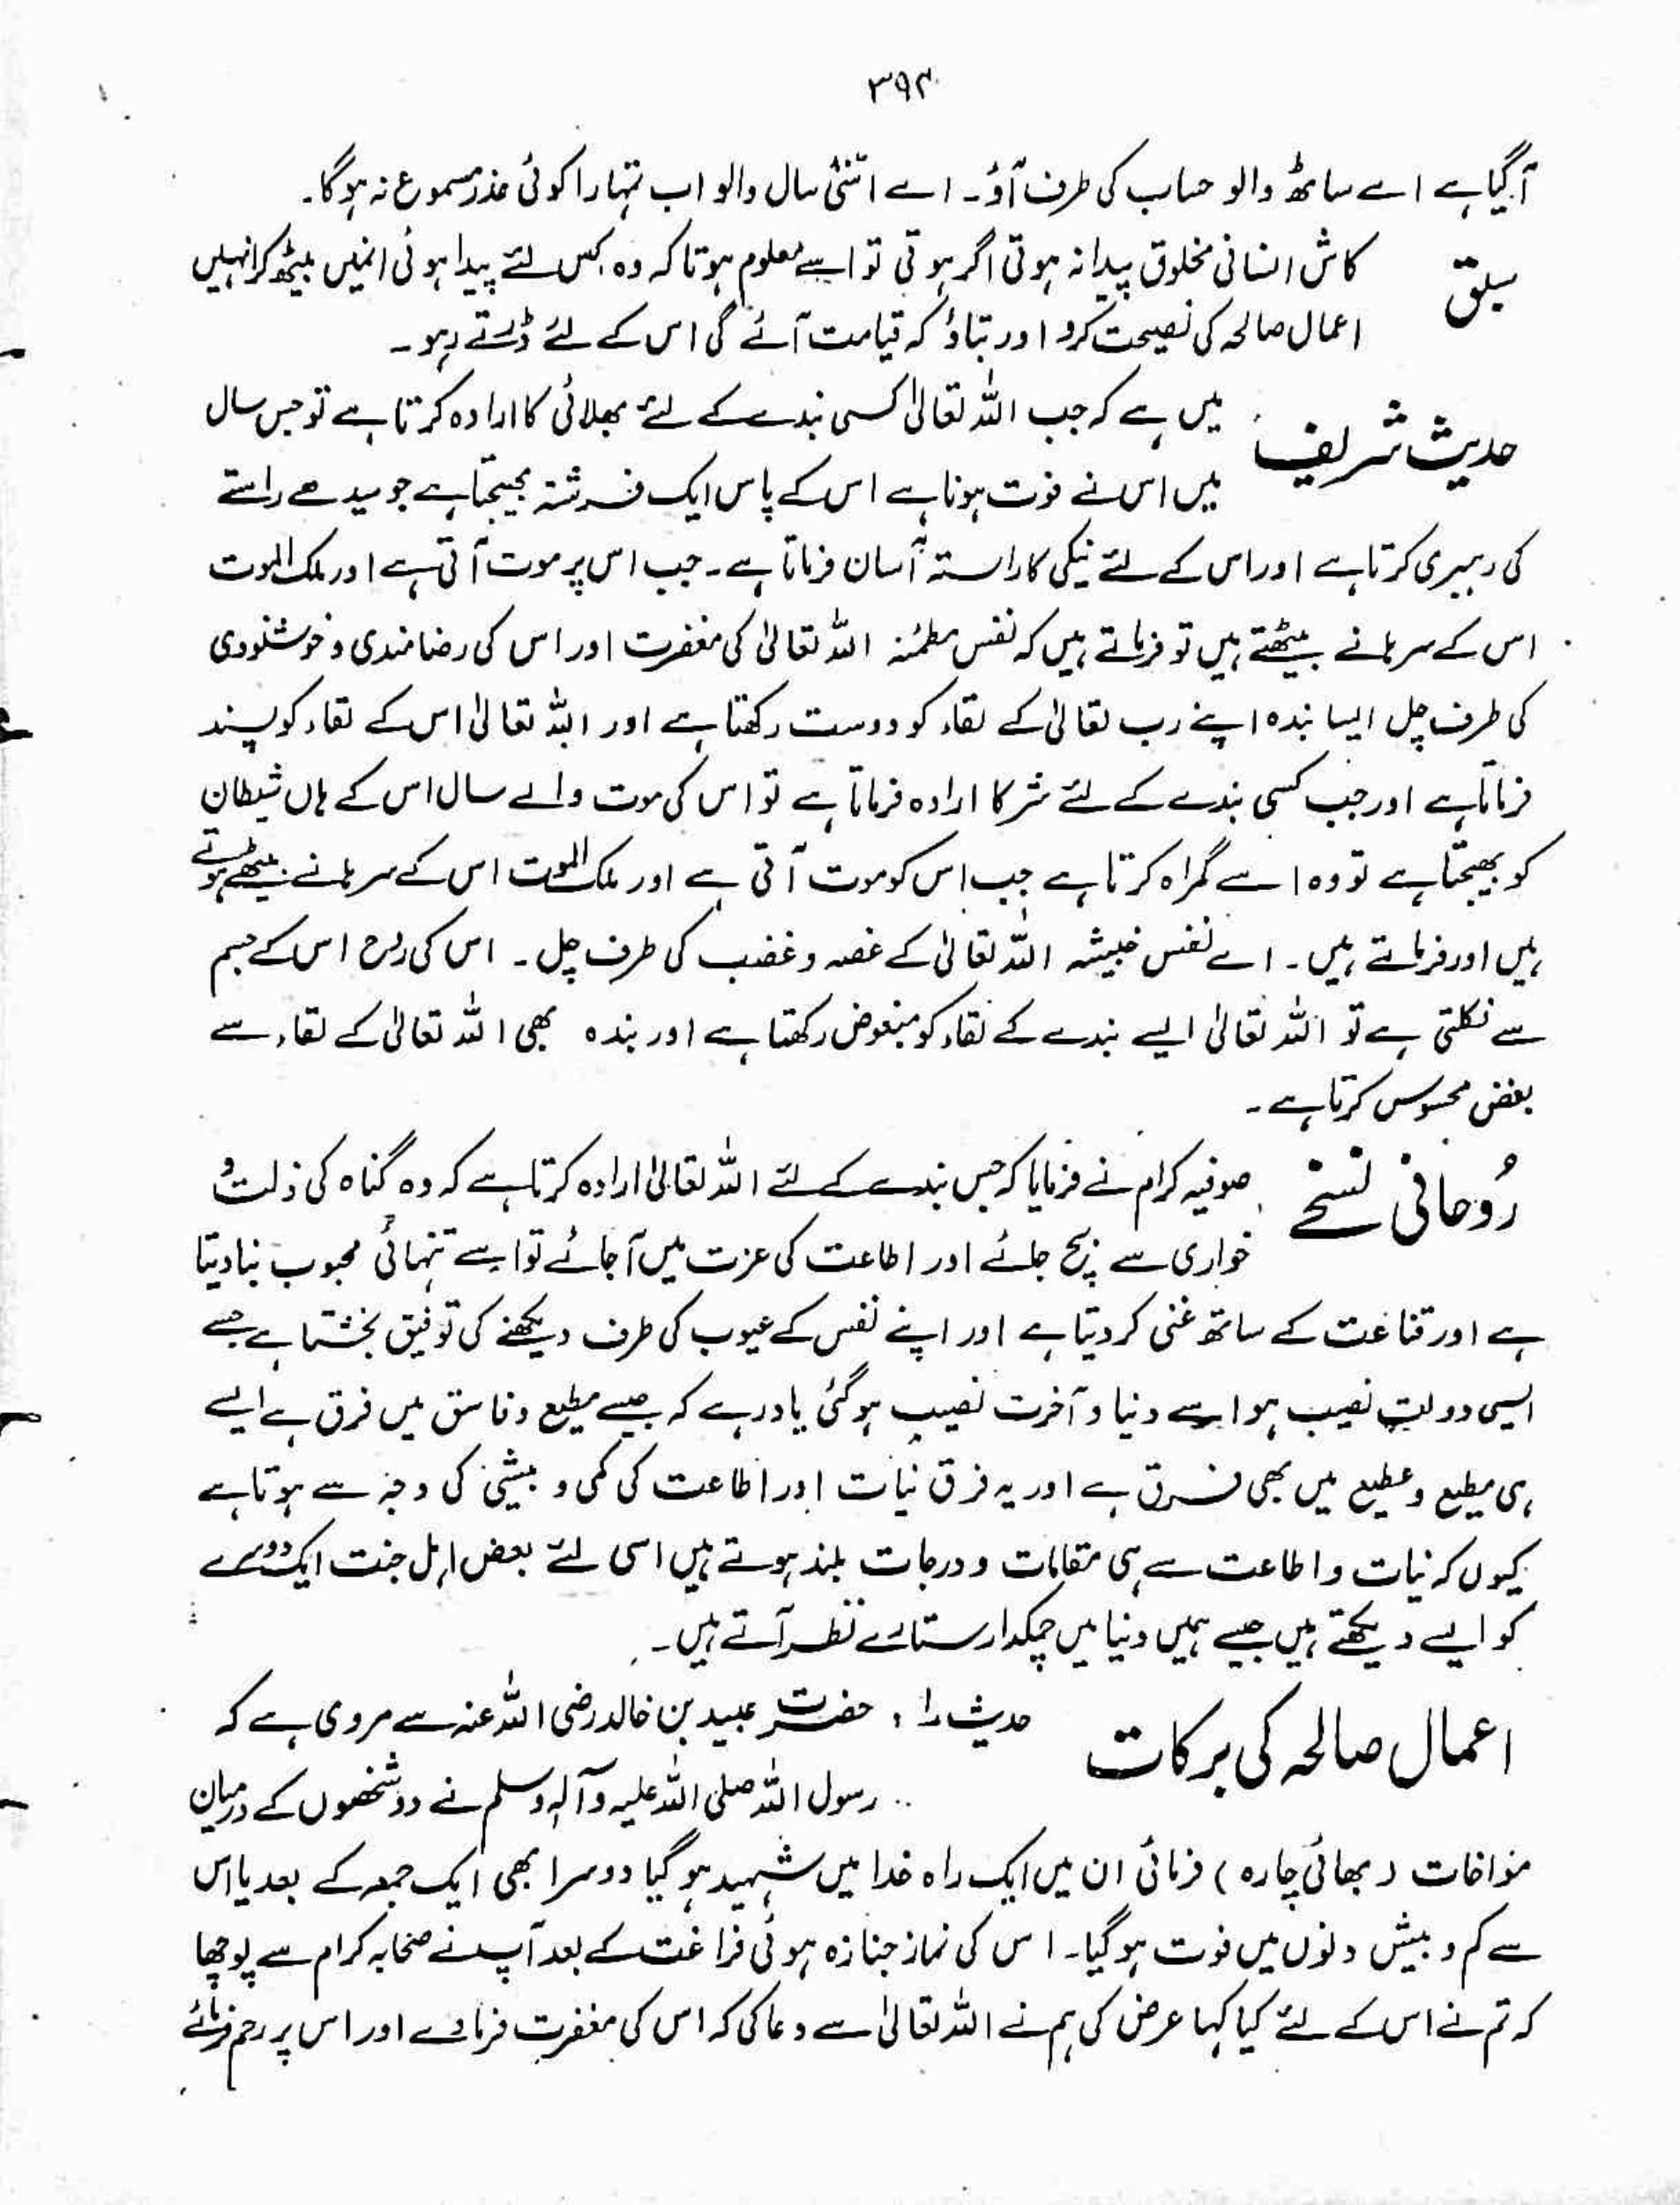 ۳۹۴
آگیا ہے اے ساٹھ والو حساب کی طرف آؤ۔ اے اسّی سال والو اب تمہارا کوئی عذر مسموع نہ ہوگا۔
سبق
کاش انسانی مخلوق پیدا نہ ہوتی اگر ہوتی تو اسے معلوم ہوتا کہ وہ کس لئے پیدا ہوئی انمیں بیٹھ کر انہیں
اعمال صالحہ کی نصیحت کرو اور بتاؤ کہ قیامت آئے گی اس کے لئے ڈرتے رہو۔
حدیث شریف
میں ہے کہ جب اللہ تعالیٰ کسی بندے کے لئے بھلائی کا ارادہ کرتا ہے تو جس سال
میں اس نے فوت ہونا ہے اس کے پاس ایک فرشتہ بھیجتا ہے جو سیدھے راستے
کی رہبری کرتا ہے اور اس کے لئے نیکی کا راستہ آسان فرماتا ہے۔ جب اس پر موت آتی ہے اور ملک الموت
اس کے سرہانے بیٹھتے ہیں تو فرماتے ہیں کہ نفس مطمئنہ اللہ تعالیٰ کی مغفرت اور اس کی رضامندی و خوشنودی
کی طرف چل ایسا بندہ اپنے رب تعالیٰ کے لقاء کو دوست رکھتا ہے اور اللہ تعالیٰ اس کے لقاء کو پسند
فرماتا ہے اور جب کسی بندے کے لئے شر کا ارادہ فرماتا ہے تو اس کی موت والے سال اس کے ہاں شیطان
کو بھیجتا ہے تو وہ اسے گمراہ کرتا ہے جب اس کو موت آتی ہے اور ملک الموت اس کے سرہانے بیٹھے ہوتے
ہیں اور فرماتے ہیں۔ اے نفس خبیثہ اللہ تعالیٰ کے غصہ و غضب کی طرف چل۔ اس کی روح اس کے جسم
سے نکلتی ہے تو اللہ تعالیٰ ایسے بندے کے لقاء کو مبغوض رکھتا ہے اور بندہ بھی اللہ تعالیٰ کے لقاء سے
بغض محسوس کرتا ہے۔
رُوحانی نسخے
صوفیہ کرام نے فرمایا کہ جس بندے کے لئے اللہ تعالیٰ ارادہ کرتا ہے کہ وہ گناہ کی ذلت و
خواری سے بچ جائے اور اطاعت کی عزت میں آجائے تو اسے تنہائی محبوب بنا دیتا
ہے اور قناعت کے ساتھ غنی کر دیتا ہے اور اپنے نفس کے عیوب کی طرف دیکھنے کی توفیق بخشتا ہے جسے
ایسی دولت نصیب ہو اسے دنیا و آخرت نصیب ہوگئی یاد رہے کہ جیسے مطیع و فاسق میں فرق ہے ایسے
ہی مطیع و مطیع میں بھی فرق ہے اور یہ فرق نیات اور اطاعت کی کمی و بیشی کی وجہ سے ہوتا ہے
کیوں کہ نیات و اطاعت سے ہی مقامات و درجات بلند ہوتے ہیں اسی لئے بعض اہل جنت ایک دوسرے
کو ایسے دیکھتے ہیں جیسے ہمیں دنیا میں چمکدار ستارے نظر آتے ہیں۔
اعمال صالحہ کی برکات
حدیث ۱، حضرت عبید بن خالد رضی اللہ عنہ سے مروی ہے کہ
رسول اللہ صلی اللہ علیہ وآلہ وسلم نے دو شخصوں کے درمیان
مؤاخات (بھائی چارہ) فرمائی ان میں ایک راہ خدا میں شہید ہوگیا دوسرا بھی ایک جمعہ کے بعد یا اس
سے کم و بیش دنوں میں فوت ہوگیا۔ اس کی نماز جنازہ ہوئی فراغت کے بعد آپ نے صحابہ کرام سے پوچھا
کہ تم نے اس کے لئے کیا کہا عرض کی ہم نے اللہ تعالیٰ سے دعا کی کہ اس کی مغفرت فرما دے اور اس پر رحم فرمائے